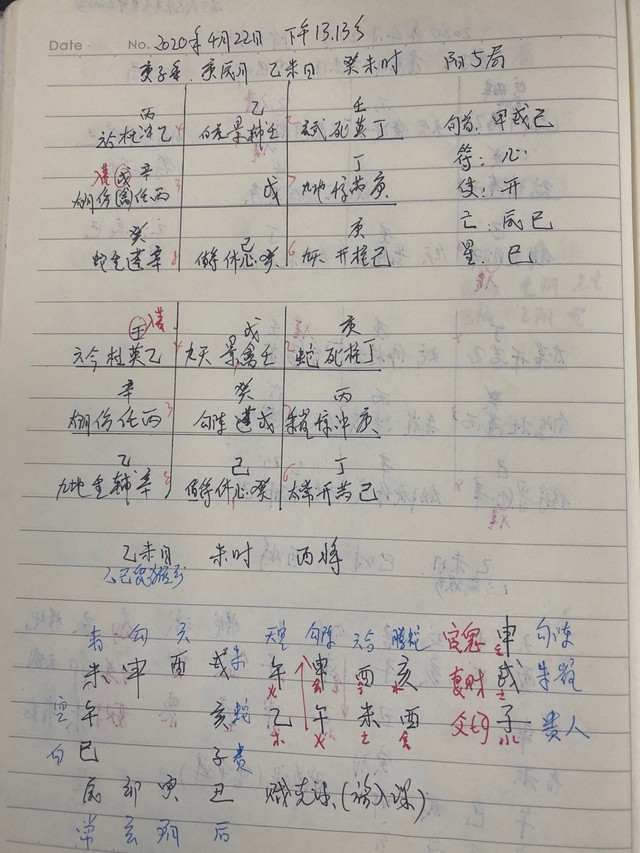 Date No. 2020年4月22日 下午13.13
庚子年. 庚辰月 乙未日 癸未时 阳5局
丙 乙 壬
六合杜冲乙 4 白虎景辅壬 玄武死英丁 2 旬首. 甲戌己
辛 丁 符: 心
戊 九地惊芮庚 7 使: 开
癸 己 庚 亡: 辰巳
蛇生蓬辛 8 值符休心癸 九天 开柱己 6 星: 巳
壬 戊 庚
六合杜英乙 4 九天景禽壬 蛇死柱丁 2
辛 癸 丙
太阴伤任丙 3 勾陈蓬戊 朱雀惊冲庚
乙 己 丁
九地生辅辛 8 值符休心癸 太常开芮己 6
乙未日 未时 酉将
辰巳空
青 勾 六 天空 勾陈 六合 螣蛇 官鬼 申 勾陈
未 申 酉 戌 朱 午 申 酉 亥 妻财 戌 朱雀
空 午 亥 蛇 乙 午 未 酉 父母 子 贵人
白 巳 子 贵
辰 卯 寅 丑
常 玄 阴 后